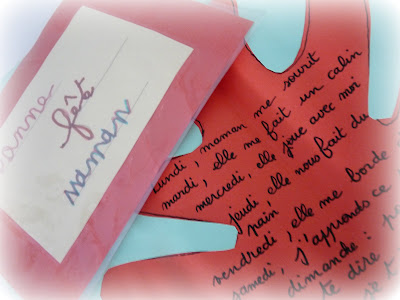 anne
fête
maman
lundi, maman me sourit
mardi, elle me fait un calin
mercredi, elle joue avec moi
jeudi elle nous fait du
pain,
vendredi, elle me borde
samedi, j'apprends ce
dimanche: p
te dire